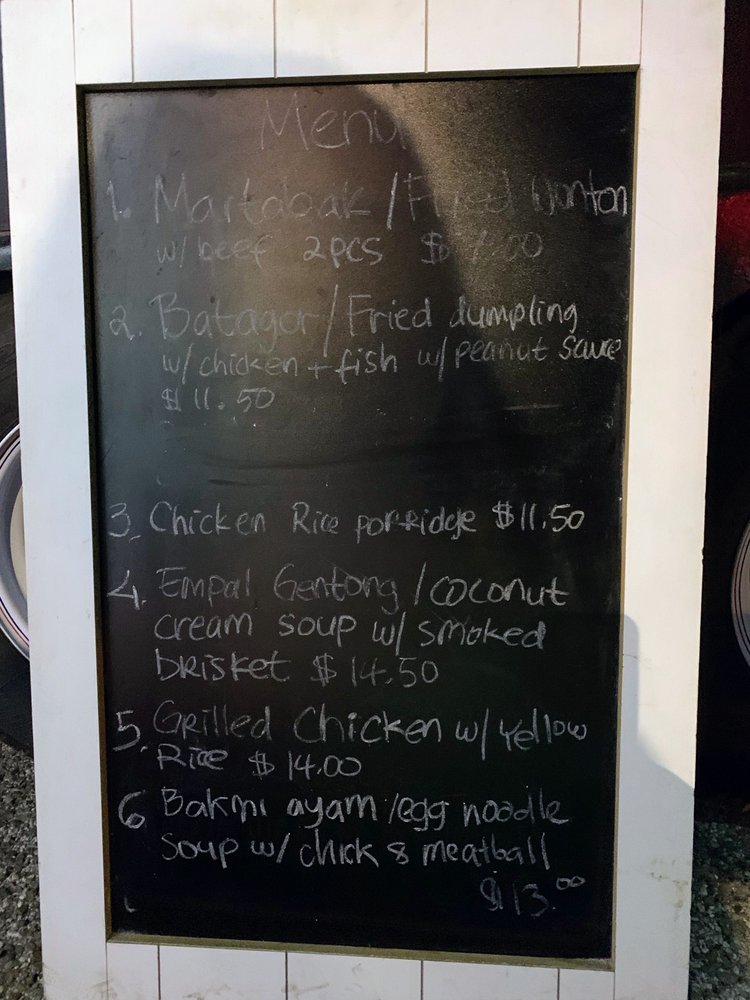 Menu
1. Martabak / Fried Wonton
w/ beef 2pcs $
2. Batagor/Fried dumpling
w/chicken + fish w/peanut sauce
$11.50
3. Chicken Rice porridge $11.50
4. Empal Gentong / coconut
cream soup w/ smoked
brisket $14.50
5. Grilled Chicken w/ Yellow
Rice $14.00
6 Bakmi ayam /egg noodle
soup w/ chick & meatball
$13.00